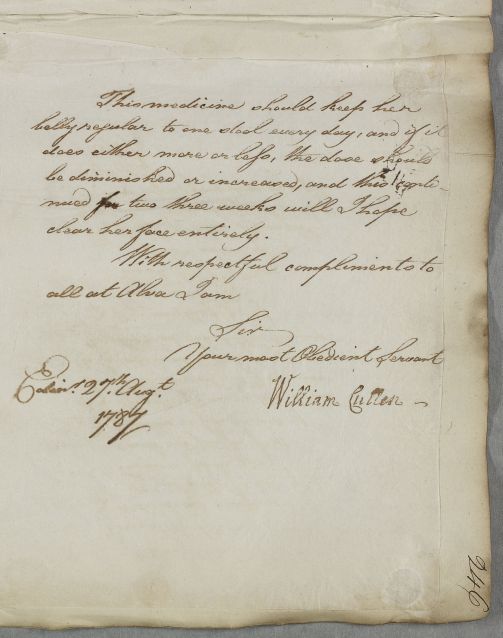 This medicine should keep her
belly regular to one stool every day, and if it
does either more or less, the dose should
be diminished or increased, and this conti-
nued for two three weeks will I hope
clear her face entirely.
With respectful compliments to
all at Alva I am
Sir
Your most Obedient Servant
William Cullen
Edinr. 27th. Augt.
1787
246